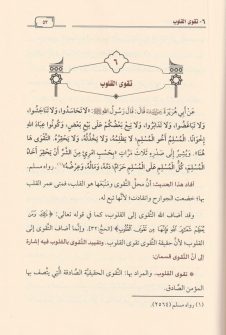 ٦- تقوى القلوب
٥٣
٦
تقوى القلوب
عَنْ أَبِي هُرَيْرَةَ قَالَ: قَالَ رَسُولُ اللهِ ﷺ: «لَا تَحَاسَدُوا، وَلَا تَنَاجَشُوا،
وَلَا تَبَاغَضُوا، وَلَا تَدَابَرُوا، وَلَا يَبِعْ بَعْضُكُمْ عَلَى بَيْعِ بَعْضٍ، وَكُونُوا عِبَادَ اللهِ
إِخْوَانًا. الْمُسْلِمُ أَخُو الْمُسْلِمِ، لَا يَظْلِمُهُ، وَلَا يَخْذُلُهُ، وَلَا يَحْقِرُهُ. التَّقْوَى هَا
هُنَا». وَيُشِيرُ إِلَى صَدْرِهِ ثَلَاثَ مَرَّاتٍ «بِحَسْبِ امْرِئٍ مِنَ الشَّرِّ أَنْ يَحْقِرَ أَخَاهُ
الْمُسْلِمَ، كُلُّ الْمُسْلِمِ عَلَى الْمُسْلِمِ حَرَامٌ، دَمُهُ، وَمَالُهُ، وَعِرْضُهُ»(١). رواه مسلم.
أفاد هذا الحديث: أنَّ محلَّ التَّقوى ومَنبَعَها هو القلب، فمتى عمر القلب
بها؛ خضعت الجوارح وانقادت؛ لأنَّها تبع له.
وقد أضاف الله التَّقوى إلى القلوب، كما في قوله تعالى: ﴿ذَلِكَ وَمَن
يُعَظِّمْ شَعَائِرَ اللَّهِ فَإِنَّهَا مِن تَقْوَى الْقُلُوبِ﴾ [الحج: ٣٢]. وإنَّما أضاف التَّقوى إلى
القلوب؛ لأنَّ حقيقة تقوى القلوب. وتقييد التَّقوى بالقلوب فيه إشارة
إلى أنَّ التَّقوى قسمان:
تقوى القلوب، والمراد بها: التَّقوى الحقيقيَّة الصَّادقة الَّتي يتَّصف بها
المؤمن الصَّادق.
(١) رواه مسلم (٢٥٦٤).